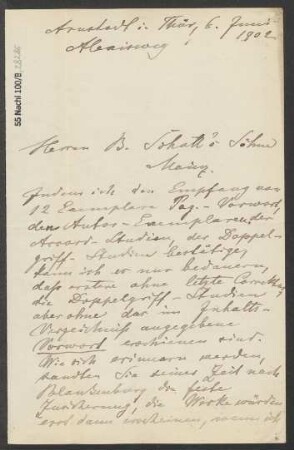 Arnstadt i. Thür, 6. Juni
1902
55 Nachl 100/B
Herrn B. Schott's Söhne
Mainz.
Indem ich den Empfang von
12 Exemplare Pag. Vorwort,
den Autor-Exemplaren, der
Accord-Studien, der Doppel-
griff-Studien bestätige,
kann ich es nur bedauern,
daß erstere ohne letzte Correktur,
die Doppelgriff-Studien
aber ohne das im Inhalts-
Verzeichniß angegebene
Vorwort erschienen sind.
Wie sich erinnern werden,
sandten Sie seiner Zeit nach
Blankenburg die feste
Zusicherung, die Werke würden
erst dann erscheinen, wenn ich